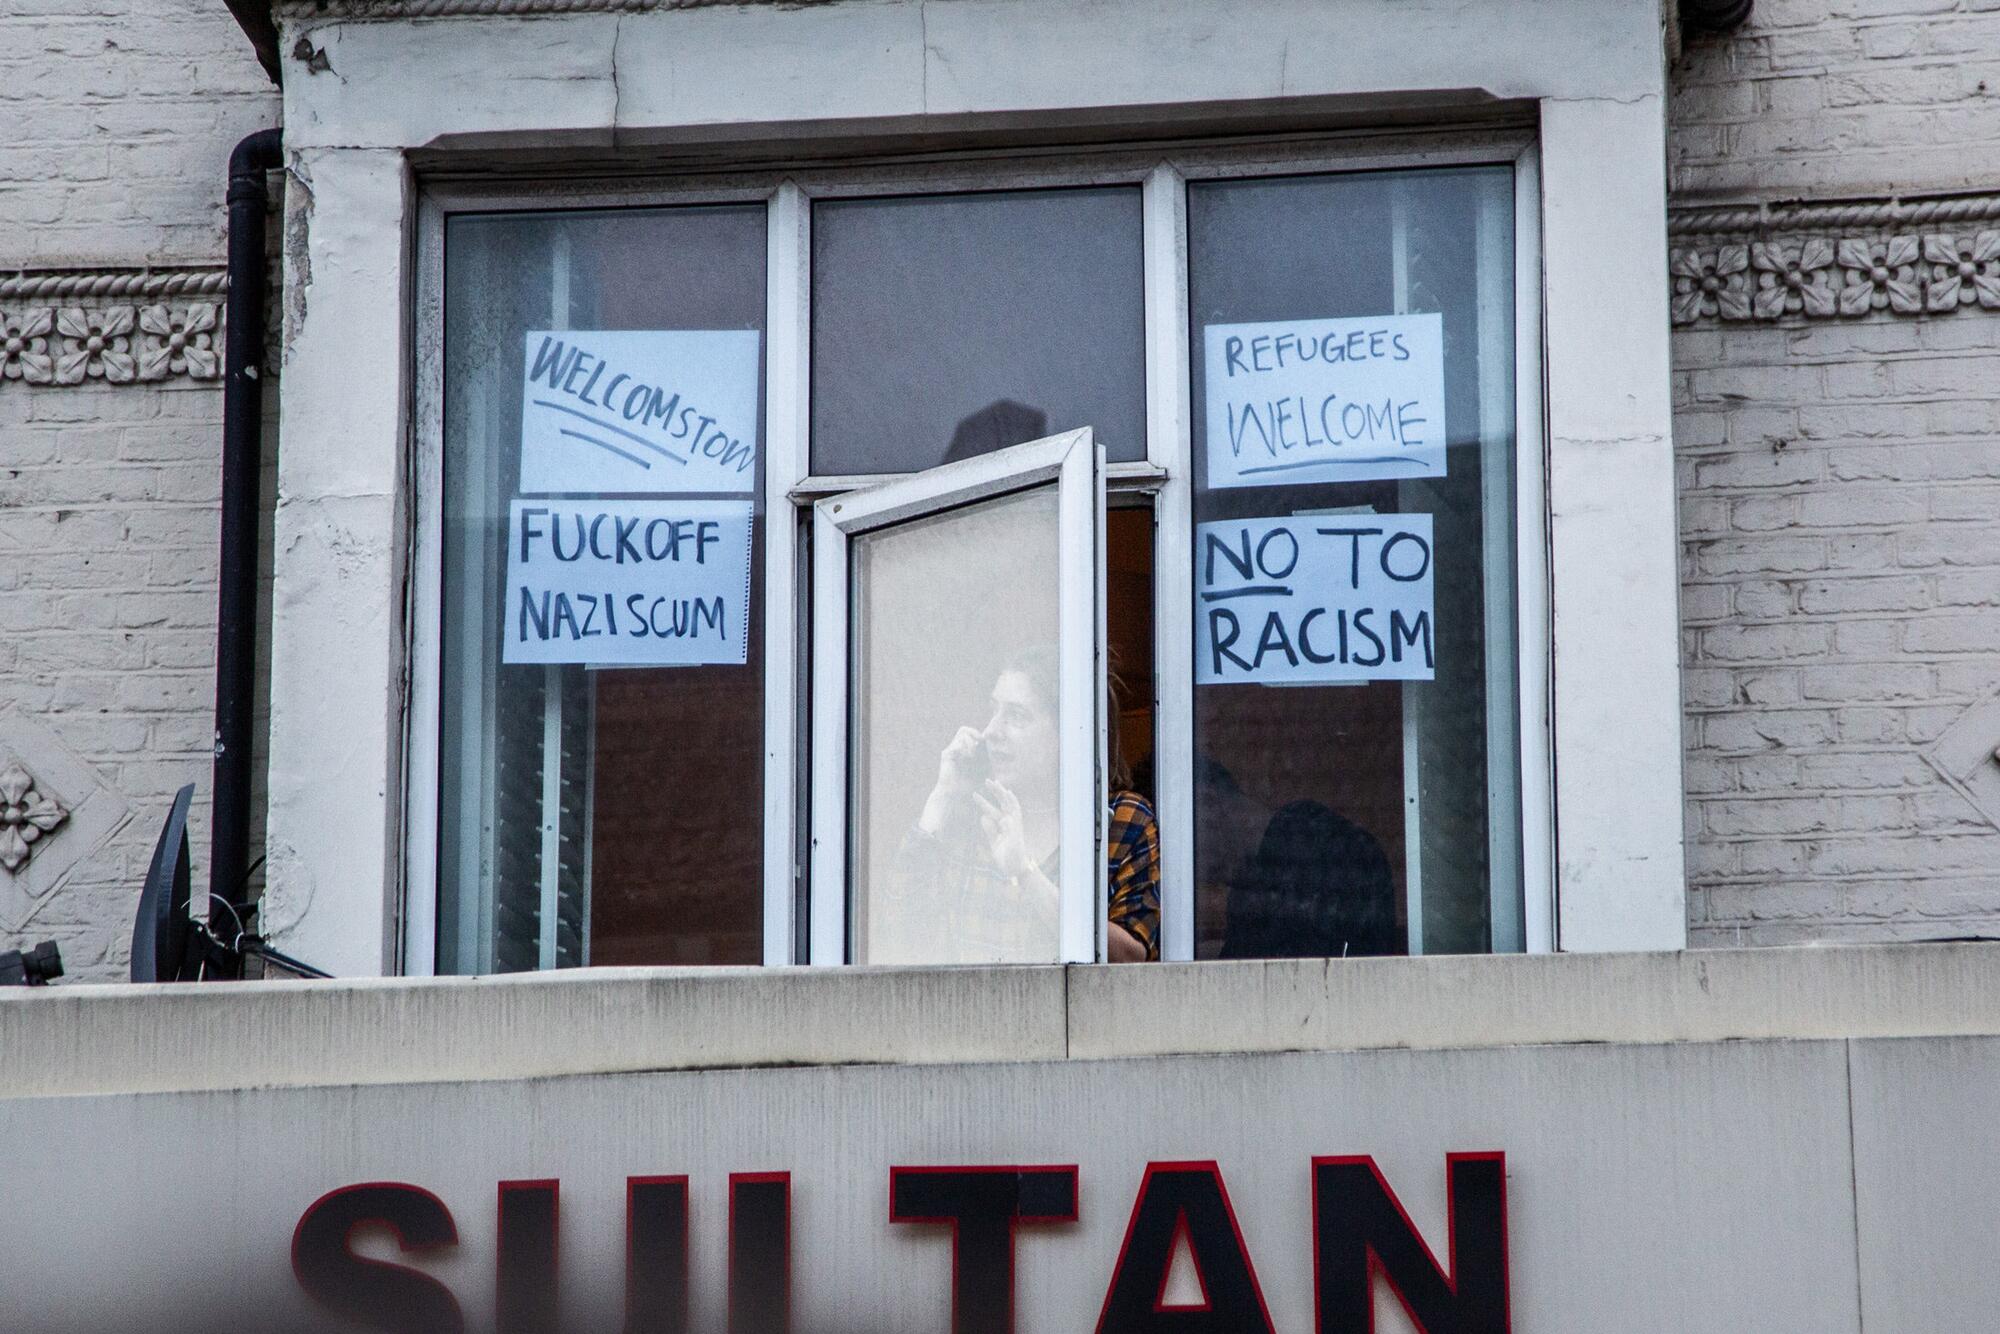 WELCOMSTOW
FUCK OFF
NAZI SCUM
REFUGEES
WELCOME
NO TO
RACISM
SULTAN